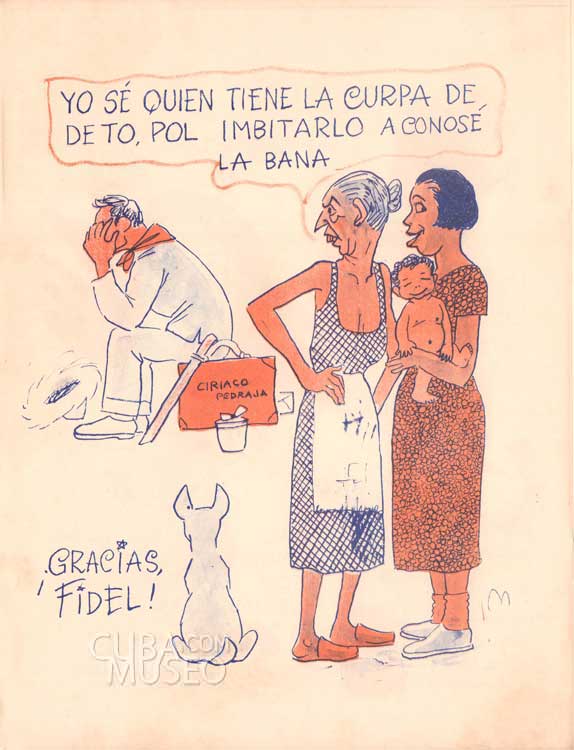 YO SÉ QUIEN TIENE LA CURPA DE
DE TO, POL IMBITARLO A CONOSÉ
LA BANA
CIRIACO
PEDRAJA
¡GRACIAS,
FIDEL!
CUBA.COM
MUSEO